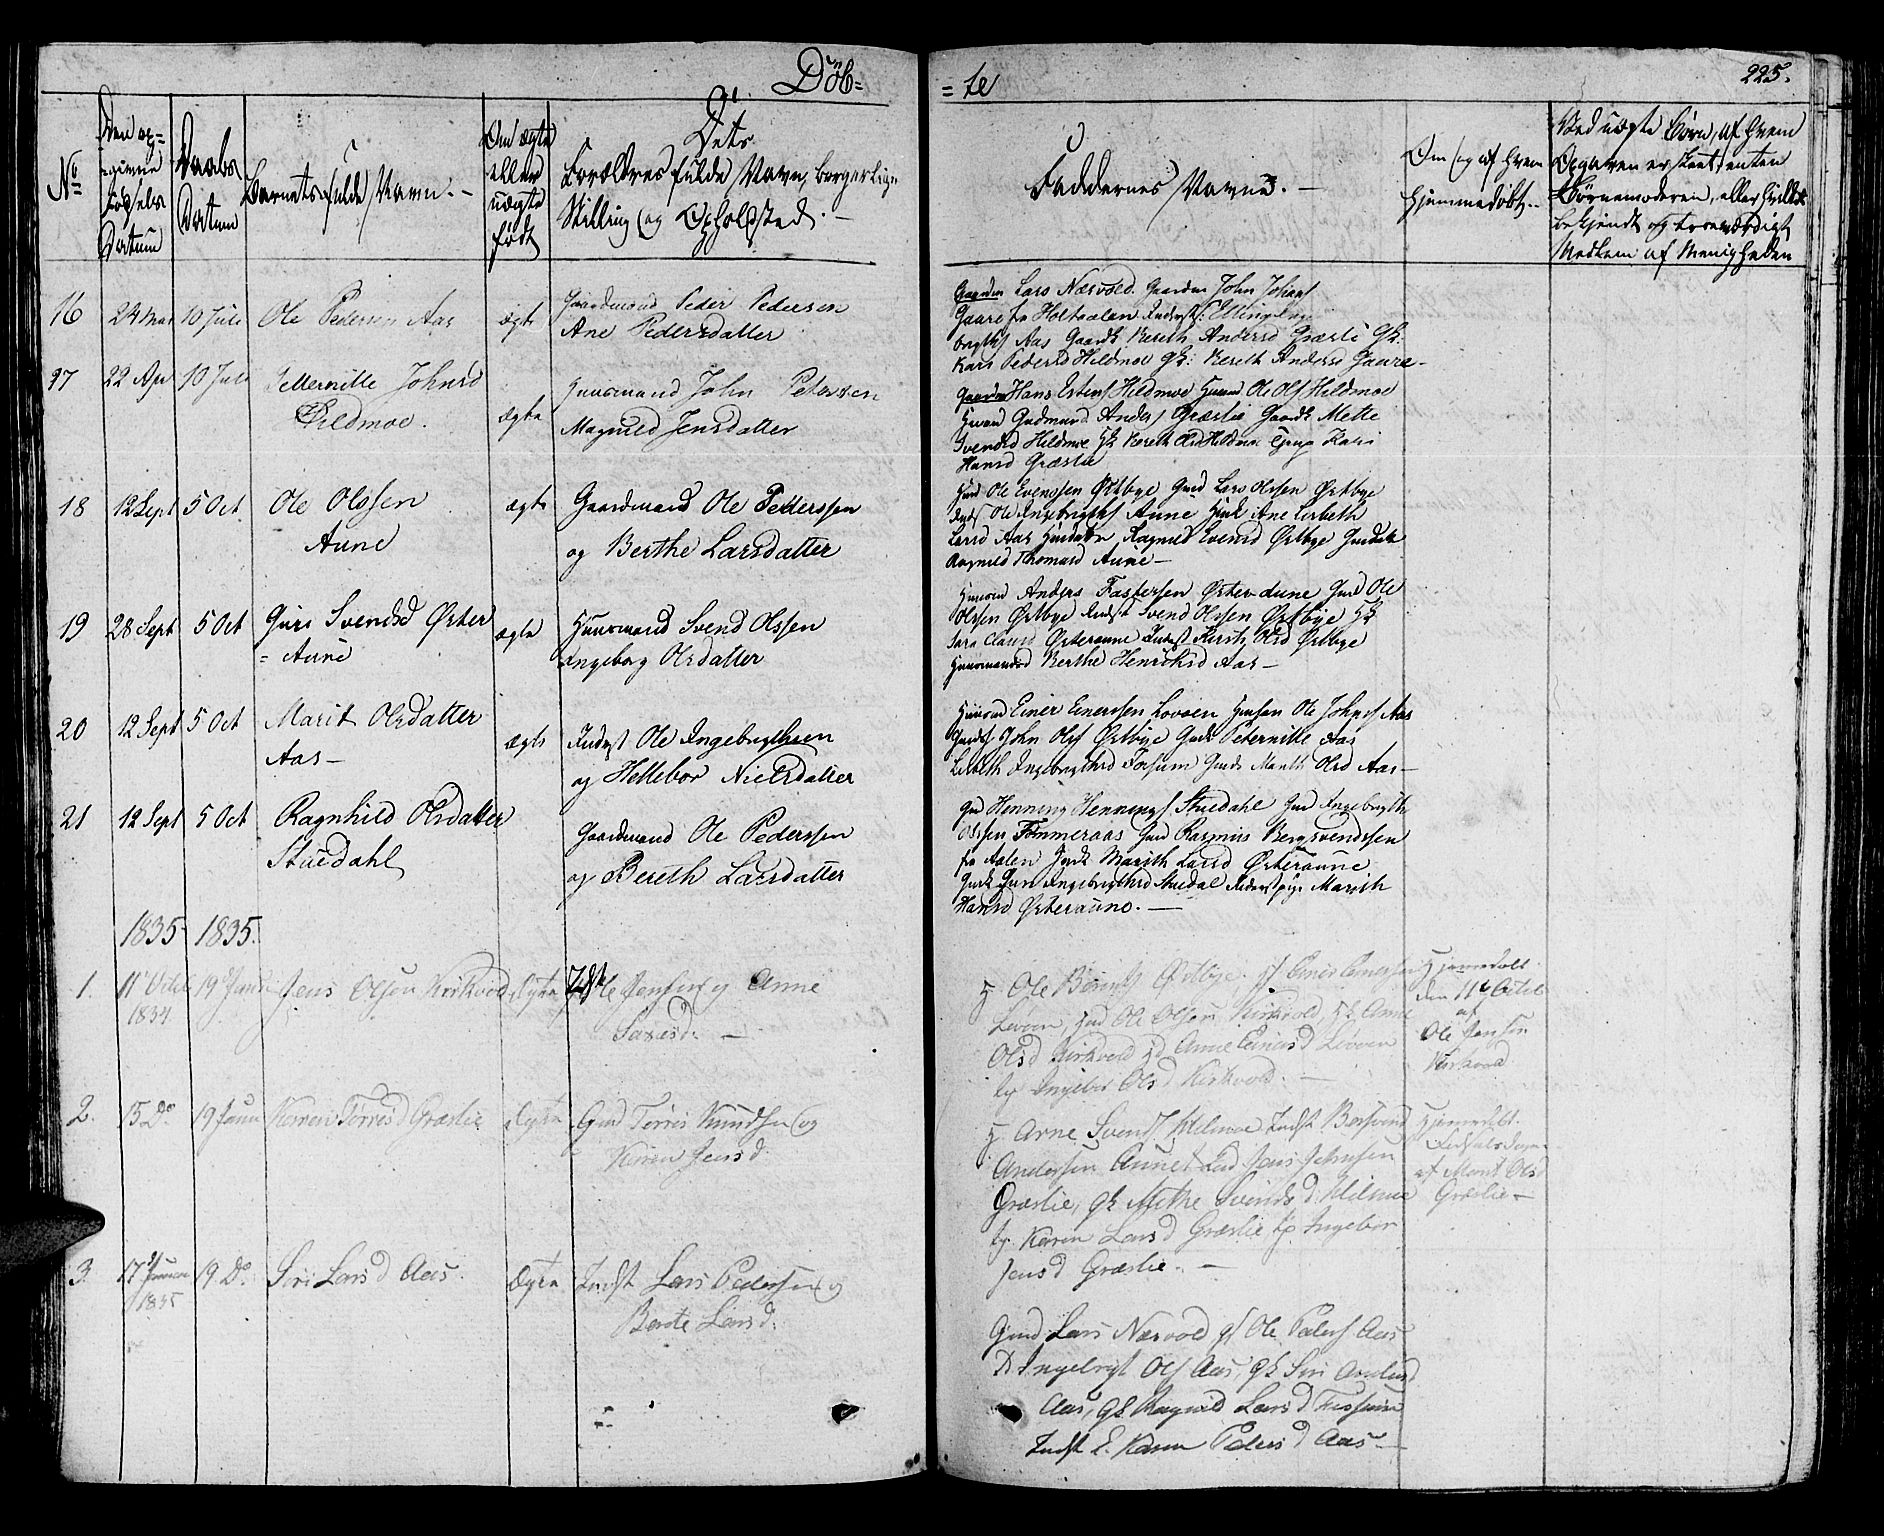 Döb=
= te
225.
No
Den op-
givne
Fødsels
Datum
Daabs
Datum
Barnets fulde Navn. -
Om ægte
eller
uægte
født
Dets
Forældres fulde Navn, borgerlige
Stilling og Opholdsted. -
Faddernes Navne. -
Om og af hvem
hjemmedøbt. -
Ved uægte Børn, af hvem
Opgaven er skeet, enten
Børnemoderen, eller hvilket
bekjendt og troeværdigt
Medlem af Menigheden
16
24 Mai
10 Juli
Ole Pedersen Aas
ægte
Gaardmand Peder Pedersen
Ane Pedersdatter
Gaardm Lars Næsvold. Gaardm John Johans
Gaare fra Holtaalen Inderst Elling
Aas Gaardk Bereth Andersd Græsli Gk:
Kari Pedersd Hildmoe Gk: Bereth Andersd Gaare -
17
22 Apr
10 Juli
Petternille Johnsd
Hildmoe.
ægte
Huusmand John Petersen
Magnild Jensdatter
Gaardm Hans Estens Hildmoe Huusm Ole Ols Hildmoe
Huusm Gudmund Anders Græslie Gaardk Mette
Svendsd Hildmoe Hk Bereth Olsd Hildmoe Kari
Hansd Græslie
18
12 Sept
5 Oct
Ole Olssen
Aune
ægte
Gaardmand Ole Petterssen
og Berthe Larsdatter
Ole Evenssen Østbye Lars Olssen Østbye
Ole Ingebrigts Aune Ane Lisbeth
Larsd Aas Ragnild Evensd Østbye
Ragnild Thomasd Aune -
19
28 Sept
5 Oct
Guri Svendsd Øster
= Aune
ægte
Huusmand Svend Olssen
Ingeborg Olsdatter
Huusm Anders Fastersen Østeraune Ole
Olssen Østbye Inderst Svend Olssen Østbye Hk
Sara Clausd Østeraune Inderst Olsd Østbye
Huusmandsd Berthe Henrichsd Aas -
20
12 Sept
5 Oct
Marit Olsdatter
Aas -
ægte
Inderst Ole Ingebrigtsen
og Hellebor Nielsdatter
Huusm Einer Einersen Lovøen Ole Johns Aas
John Ols Østbye Peternille Aas
Lisbeth Ingebrigtsd Fossum Marith Olsd Aas -
21
12 Sept
5 Oct
Ragnhild Olsdatter
Stuedahl
Gaardmand Ole Pederssen
og Bereth Larsdatter
Henning Hennings Stuedahl Ingebrigth
Olssen Tømmeraas Rasmus Bergsvendssen
fra Aalen Marith Larsd Østeraune
Guri Ingebrigthsd Stuedal Marith
Hansd Østeraune. -
1835
1835.
1.
11t Octbr
1834
19 Januar
Jens Olsen Kirkvold
Ægte
Indst Ole Jensen og Anne
Larsd: -
Ole Bernts Østbye. Einer Einersen
Løvøen, Ole Olsen Kirkvold, Anne
Olsd Kirkvold Anne Einersd Løvøen
Ingebor Olsd Kirkvold. -
Hjemmedøbt
den 11te Octob
af
Ole Jensen
Kirkvold
2.
15 Do
19 Janu
Karen Torresd Græslie
Ægte
Gmd Torris Knudsen og
Karen Jensd.
Arne Svends Hilmoe Indst Bersvend
Andersen Aunet Jens Jensen
Græslie, gk Methe Svendsd Hilmoe
Karen Larsd Græslie Ingebor
Jensd Græslie. -
Hjemmedøbt
Fødselsdagen
af Marit Olsd
Græslie -
3.
17 Januar
1835
19. Do
Siri Larsd Aas.
Ægte
Indst Lars Pedersen og
Berte Larsd.
Gmd Lars Næsvold gs Ole Peders Aas
Ingebrigt Ols Aas, gk Siri
Aas, gk Ragnild Larsd Fossum
Indst Karen Pedersd Aas -